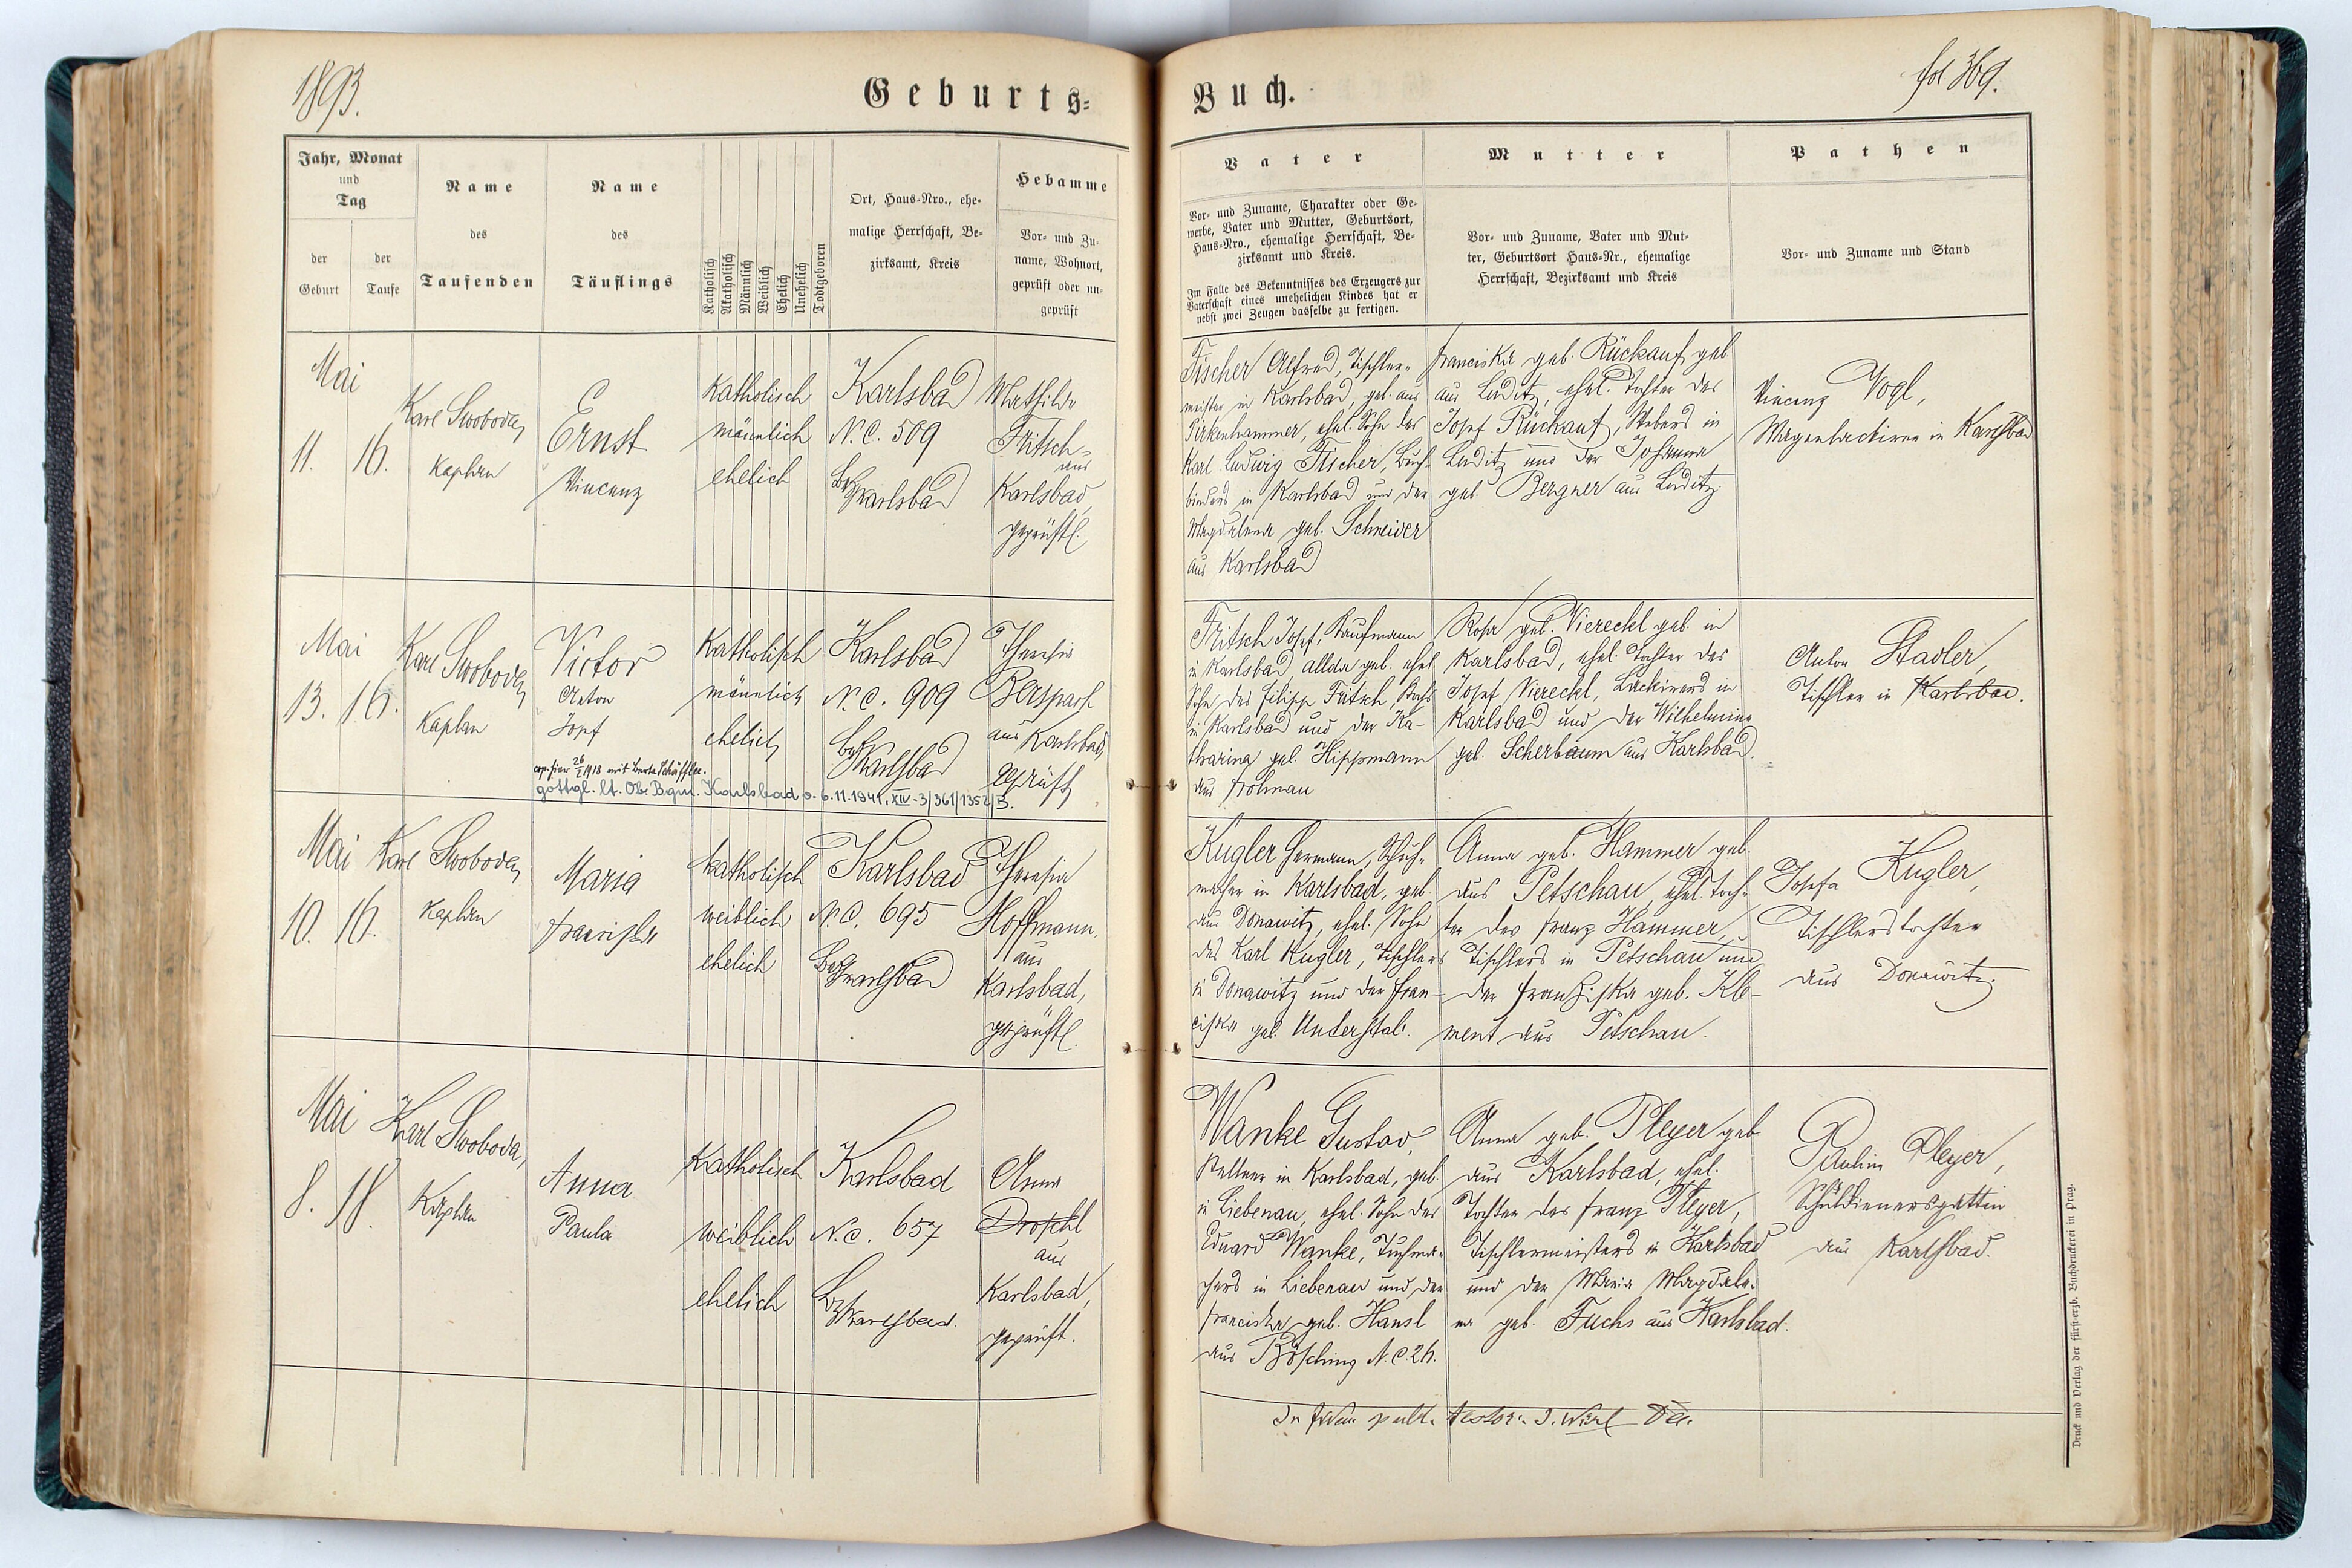 1893.
Geburts=
Buch.
fol 369.
Jahr, Monat
und
Tag
der
Geburt
der
Taufe
Name
des
Taufenden
Name
des
Täuflings
Katholisch
Akatholisch
Männlich
Weiblich
Ehelich
Unehelich
Todtgeboren
Ort, Haus-Nro., ehe-
malige Herrschaft, Be-
zirksamt, Kreis
Hebamme
Vor- und Zu-
name, Wohnort,
geprüft oder un-
geprüft
Vater
Vor- und Zuname, Charakter oder Ge-
werbe, Vater und Mutter, Geburtsort,
Haus-Nro., ehemalige Herrschaft, Be-
zirksamt und Kreis.
Im Falle des Bekenntnisses des Erzeugers zur
Vaterschaft eines unehelichen Kindes hat er
nebst zwei Zeugen dasselbe zu fertigen.
Mutter
Vor- und Zuname, Vater und Mut-
ter, Geburtsort Haus-Nr., ehemalige
Herrschaft, Bezirksamt und Kreis
Pathen
Vor- und Zuname und Stand
Mai
11. 16.
Karl Swoboda,
Kaplan
Ernst
Vincenz
Katholisch
männlich
ehelich
Karlsbad
N.C. 509
Bez Karlsbad
Mathilde
Fritsch
aus
Karlsbad,
geprüft.
Fischer Alfred, Tischler-
meister in Karlsbad, geb. aus
Pirkenhammer, ehel. Sohn des
Karl Ludwig Fischer, Buch-
binders in Karlsbad und der
Magdalena geb. Schneider
aus Karlsbad
Franciska geb. Rückauf geb
aus Luditz, ehel. Tochter des
Josef Rückauf, Webers in
Luditz und der Johanna
geb. Bergner aus Luditz.
Vincenz Vogl,
Wagenlackirer in Karlsbad
Mai
13. 16.
Karl Swoboda,
Kaplan
Victor
Anton
Josef
cop. hier 26/I 1918 mit Berta Schäffler.
gottgl. lt. Ob. Bgm. Karlsbad v. 6.11.1941, XIV-3/361/1352/B.
Katholisch
männlich
ehelich
Karlsbad
N.C. 909
Bez Karlsbad
Theresia
aus Karlsbad,
geprüft
Fritsch Josef, Kaufmann
in Karlsbad allda geb. ehel.
Sohn des Filipp Fritsch, Kochs
in Karlsbad und der Ka-
tharina geb. Hippmann
aus Frohnau
Rosa geb. Viereckl geb. in
Karlsbad, ehel. Tochter des
Josef Viereckl, Lackirers in
Karlsbad und der Wilhelmine
geb. Scherbaum aus Karlsbad.
Anton Stadler,
Tischler in Karlsbad.
Mai
10. 16.
Karl Swoboda,
Kaplan
Maria
Franziska
katholisch
weiblich
ehelich
Karlsbad
N.C. 695
Bez Karlsbad
Theresia
Hoffmann,
aus
Karlsbad,
geprüft.
Kugler Hermann, Schuh-
macher in Karlsbad, geb.
aus Donawitz, ehel. Sohn
des Karl Kugler, Tischlers
in Donawitz und der Fran-
ciska geb. Unterstab.
Anna geb. Hammer geb.
aus Petschau, ehel. Toch-
ter des Franz Hammer,
Tischlers in Petschau und
der Franziska geb. Kle-
ment aus Petschau.
Josefa Kugler,
Tischlerstochter
aus Donawitz.
Mai
8. 18.
Karl Swoboda,
Kaplan
Anna
Paula
Katholisch
weiblich
ehelich
Karlsbad
N.C. 657
Bez Karlsbad.
Anna
Droschl
aus
Karlsbad,
geprüft.
Wanke Gustav,
Kellner in Karlsbad, geb.
in Liebenau, ehel. Sohn des
Eduard Wanke, Tuchma-
chers in Liebenau und der
Franciska geb. Hansl
aus Bösching N.C. 26.
Anna geb. Pleyer geb.
aus Karlsbad, ehel.
Tochter des Franz Pleyer,
Tischlermeisters in Karlsbad
und der Maria Magdale-
na geb. Fuchs aus Karlsbad.
Paulin Pleyer,
Schuldienersgattin
aus Karlsbad.
Druck und Verlag der fürst-erzb. Buchdruckerei in Prag.